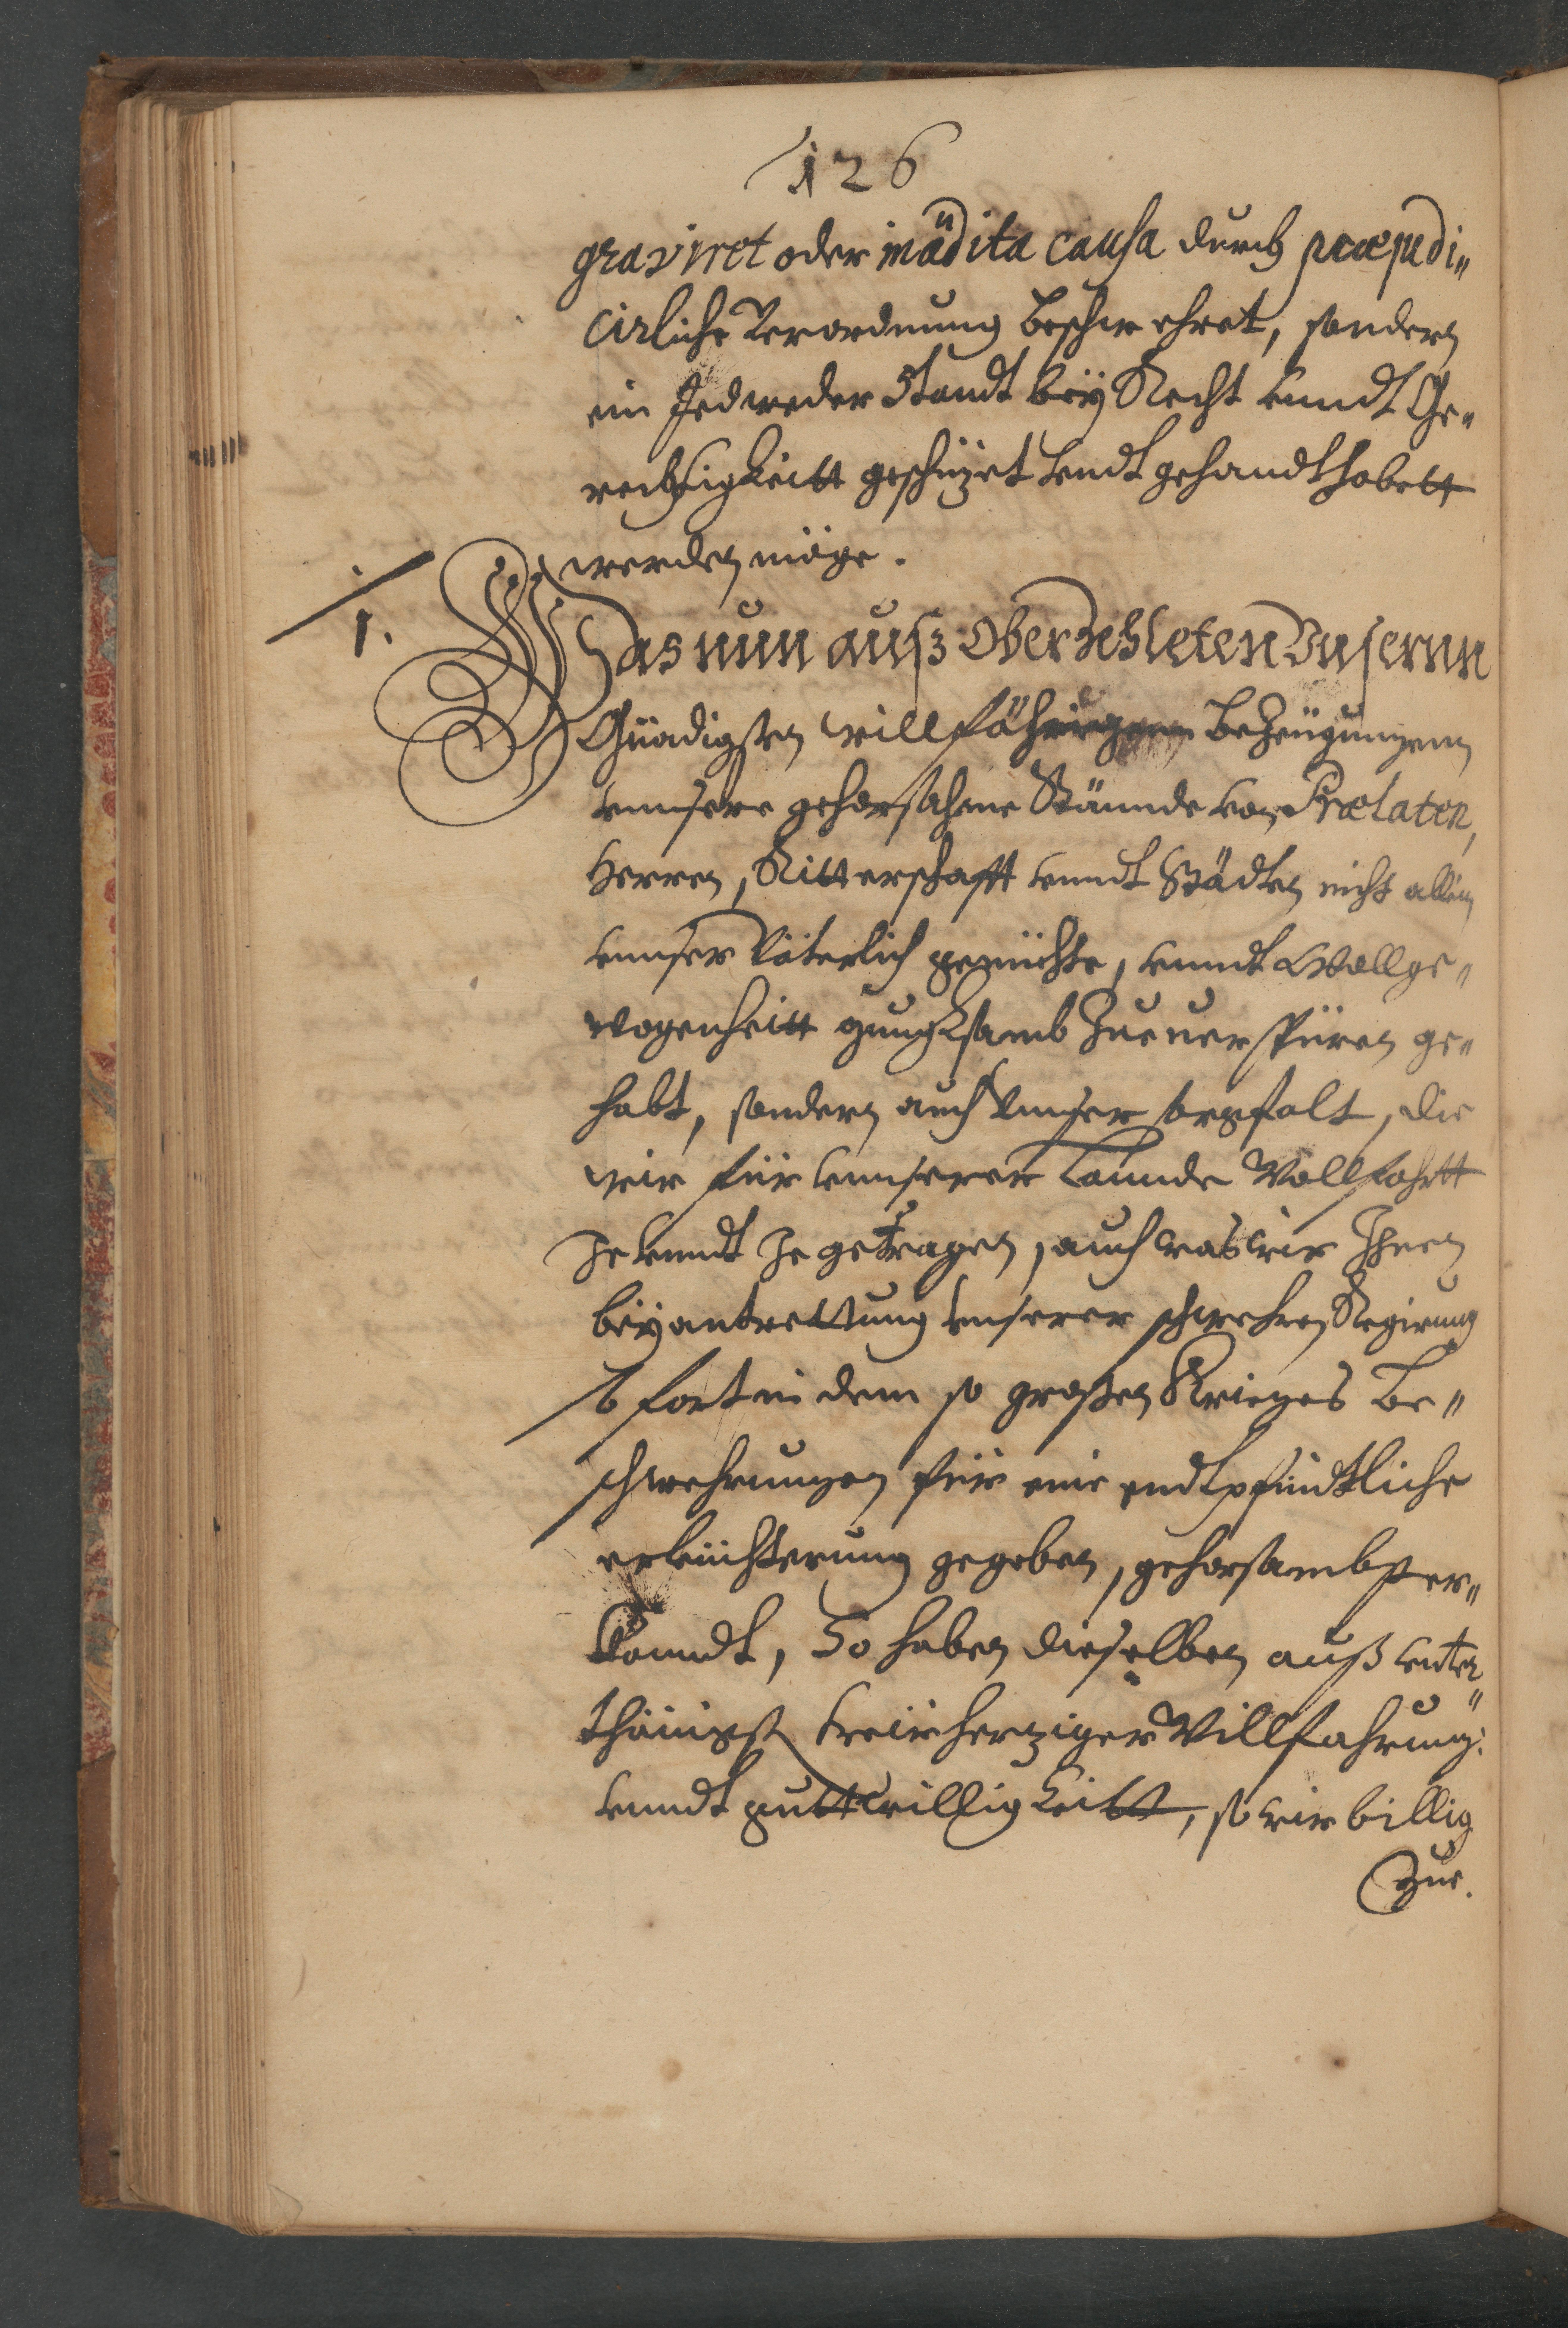 126
gravirret oder inaudita causa durch præjudi„
cirliche Verordnung beschwehret, sondern
ein Jedweder Standt bey Recht unndt Ge„
rechtigkeitt geschüzet undt gehandthabett
werden möge.
1. Was nun auß Oberzehleten Unsernn
Gnädigsten willfährigenn bezeügungenn
unnsere gehorsahme Stännde von Prælaten,
Herren, Ritterschafft unndt Städten nicht allein
unnser Väterlich gemühte, unndt Wollge„
wogenheitt gnugksamb zueuerspüren ge„
habt, sondern auch Unnser sorgfalt, die
wir für unnserer Lannde Wollfahrtt
Je unndt Je getragen, auch was wir Ihnen
bey antrettung unserer schwehren Regirung
so fort in dem so großen Krieges be„
schwehrungen für eine endtpfindtliche
erleüchterung gegeben, gehorsambst er„
kanndt, So haben dieselben auß unter„
thänigst treüwhertziger Willfahrung
unndt guttwilligkeitt, so wir billig
zue.